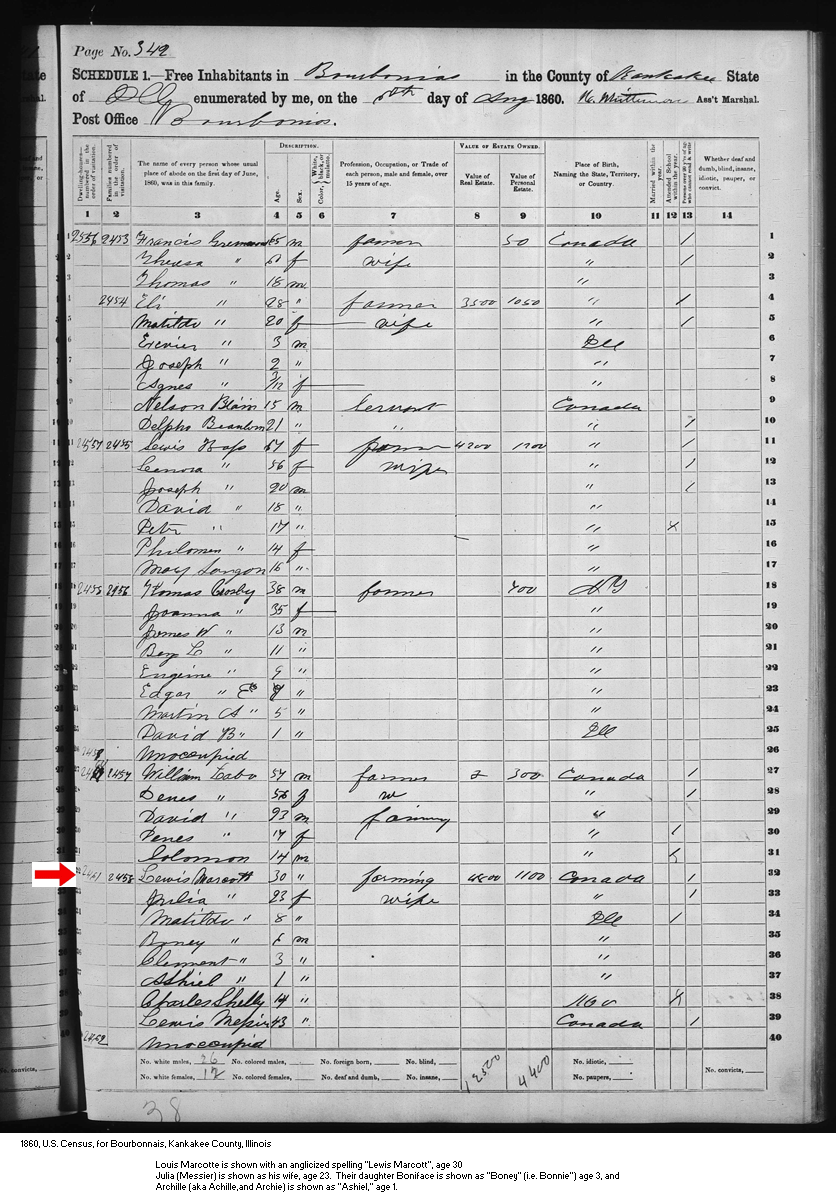 Page No. 342
SCHEDULE 1.—Free Inhabitants in Bourbonias in the County of Kankakee State
of Ills enumerated by me, on the day of Aug 1860. Ass't Marshal.
Post Office Bourbonias.
DESCRIPTION. VALUE OF ESTATE OWNED.
Dwelling-houses—numbered in the order of visitation. Families numbered in the order of visitation. The name of every person whose usual place of abode on the first day of June, 1860, was in this family. Age. Sex. Color, White, black, or mulatto. Profession, Occupation, or Trade of each person, male and female, over 15 years of age. Value of Real Estate. Value of Personal Estate. Place of Birth, Naming the State, Territory, or Country. Married within the year. Attended School within the year. Persons over 20 y'rs of age who cannot read & write Whether deaf and dumb, blind, insane, idiotic, pauper, or convict.
1 2 3 4 5 6 7 8 9 10 11 12 13 14
1 2556 2453 Francis 65 m farmer 50 Canada / 1
2 Theresa " 60 f wife " / 2
3 Thomas " 18 m " 3
4 2454 Eli " 28 " farmer 3500 1050 " / 4
5 Matilda " 20 f wife " / 5
6 " 3 m Ill 6
7 Joseph " 2 " " 7
8 Agnes " 3/12 f " 8
9 Nelson Blain 15 m Servant Canada 9
10 Delphs 21 " " " / 10
11 2557 2455 Lewis 57 f farmer 4200 1200 " / 11
12 Lenora " 56 f wife " / 12
13 Joseph " 20 m " / 13
14 David " 18 " " 14
15 Petr " 17 " " X 15
16 Philomen " 14 f " 16
17 Mary 16 " " 17
18 2458 2456 Thomas Crosby 38 m farmer 400 N Y 18
19 Joanna " 35 f " 19
20 James W " 13 m " 20
21 Benj L " 11 " " 21
22 Eugeine " 9 " " 22
23 Edgar " E 7 " " 23
24 Martin A " 5 " " 24
25 David B " 1 " Ill 25
26 2459 Unoccupied 26
27 2457 William Labo 57 m farmer 300 Canada / 27
28 Denes " 56 f w " / 28
29 David " 23 m farming " 29
30 Denes " 17 f " / 30
31 Solomon 14 m " 31
32 2461 2458 Lewis Marcott 30 " farming 4800 1100 Canada / 32
33 Julia " 23 f wife " / 33
34 Matilda " 8 " Ill / 34
35 Boney " 6 m " 35
36 Clement " 3 " " 36
37 Ashiel " 1 " " 37
38 Charles Shelly 14 " X 38
39 Lewis Messier 43 " Canada / 39
40 2462 Unoccupied 40
No. white males, 26 No. colored males, No. foreign born, No. blind, 12500 4400 No. idiotic,
No. white females, 12 No. colored females, No. deaf and dumb, No. insane, No. paupers, No. convicts,
38
1860, U.S. Census, for Bourbonnais, Kankakee County, Illinois
Louis Marcotte is shown with an anglicized spelling "Lewis Marcott", age 30
Julia (Messier) is shown as his wife, age 23. Their daughter Boniface is shown as "Boney" (i.e. Bonnie") age 3, and
Archille (aka Achille,and Archie) is shown as "Ashiel," age 1.